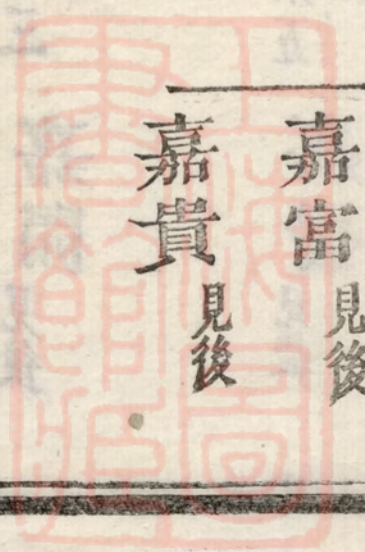 嘉富見後
嘉貴見後